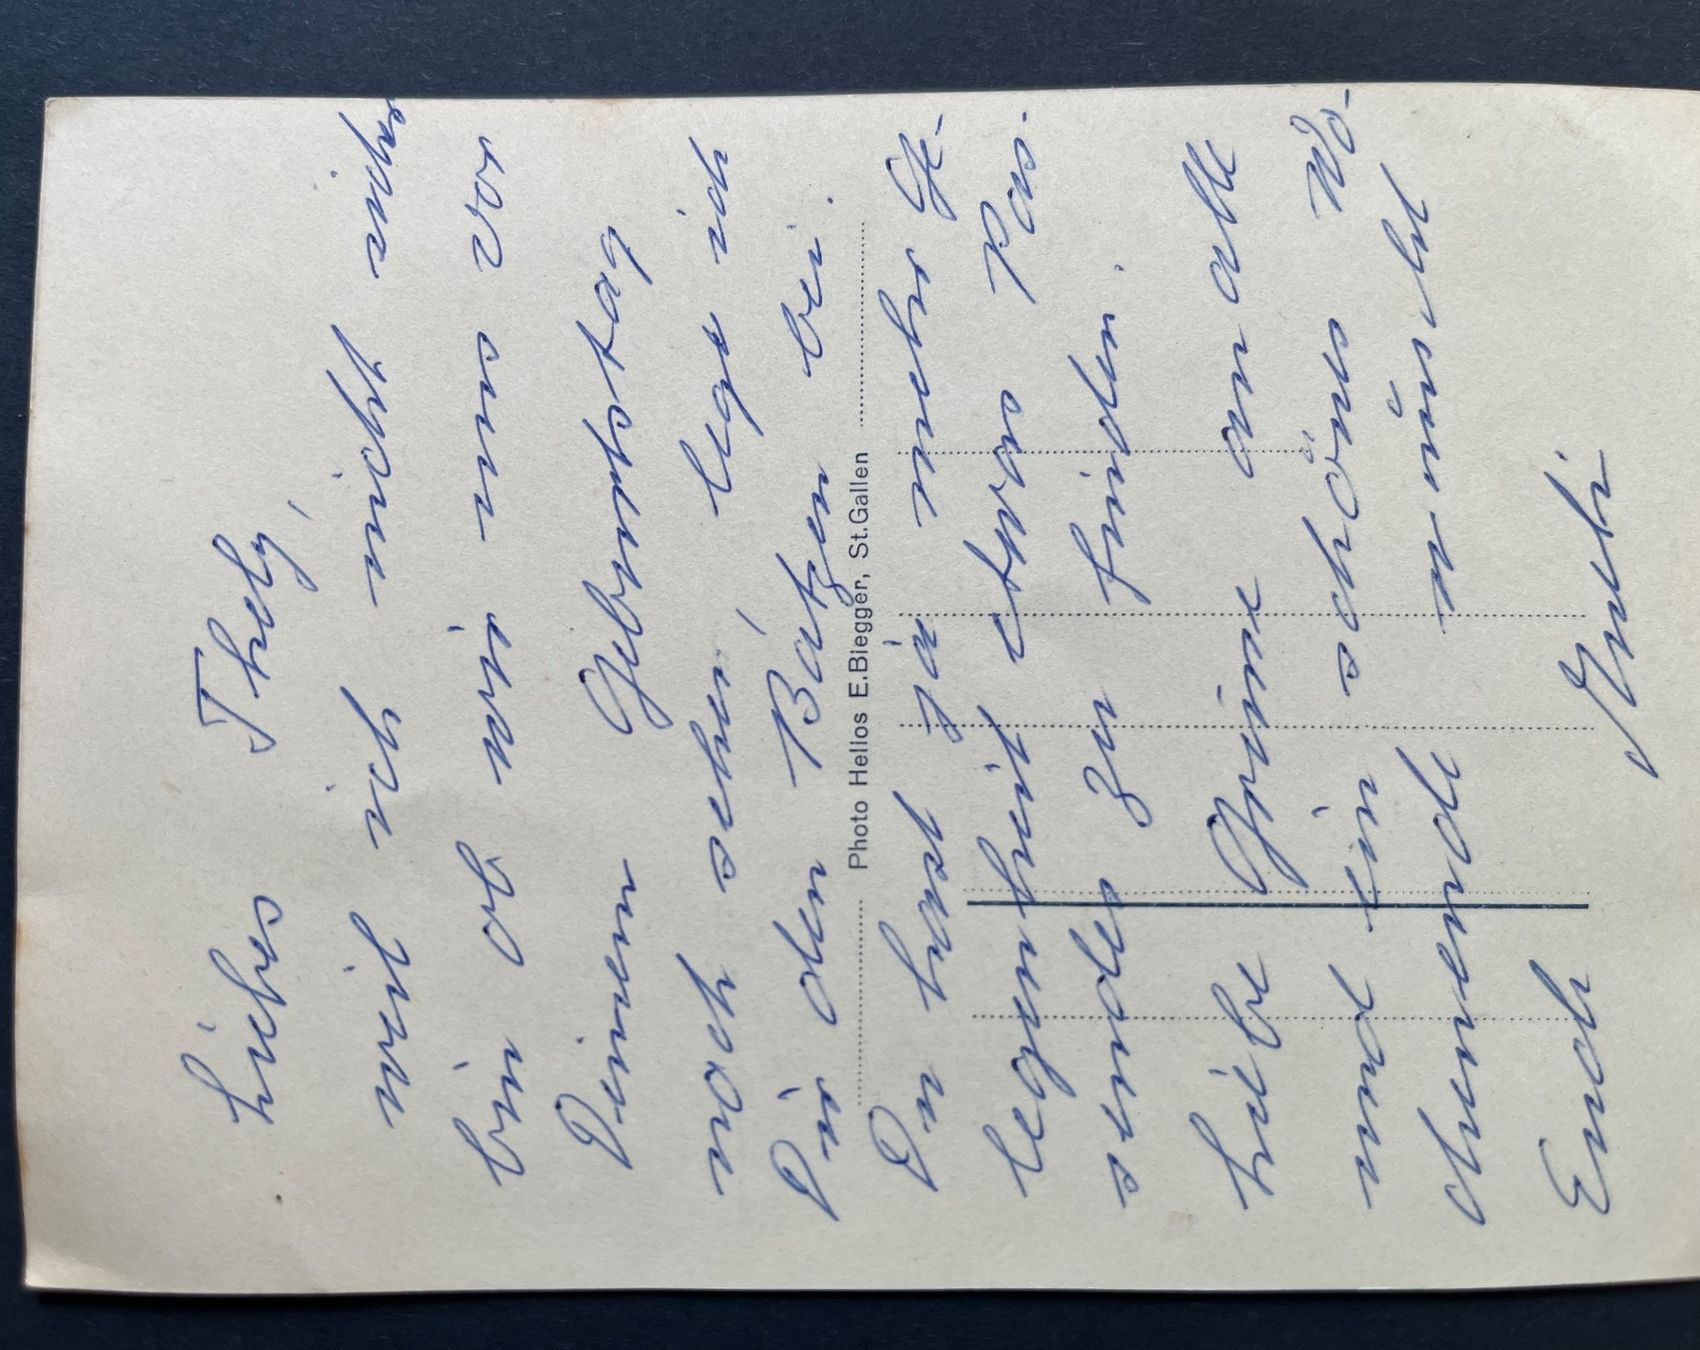 Liebes Thesy,
weil ich nicht sicher
bin ob wir uns vor
Deinem Geburtstag
noch sehen, lege ich
Dir den Batzen bei.
Du hast ja mehr Ge-
legenheit etwas Pas-
sendes zu finden.
Liebe Grüsse an alle
und ein schönes Wo-
chenende wünscht
Euch
Photo Helios E.Biegger, St.Gallen